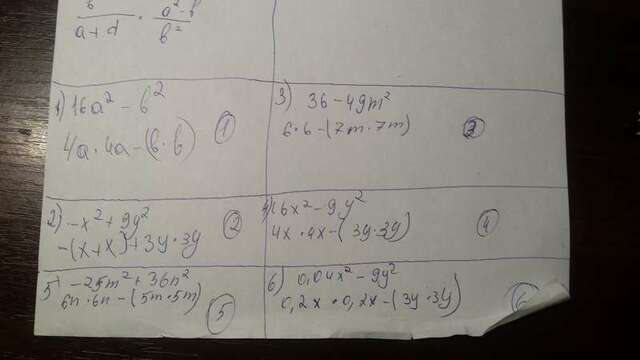 a+d · b²
1) 16a² - b²
4a · 4a - (b · b) 1
3) 36 - 49m²
6 · 6 - (7m · 7m) 3
2) -x² + 9y²
-(x+x)+3y·3y 2
4) 16x² - 9y²
4x · 4x - (3y·3y) 4
5) -25m² + 36n²
6n · 6n - (5m · 5m) 5
6) 0,04x² - 9y²
0,2x · 0,2x - (3y · 3y) 6